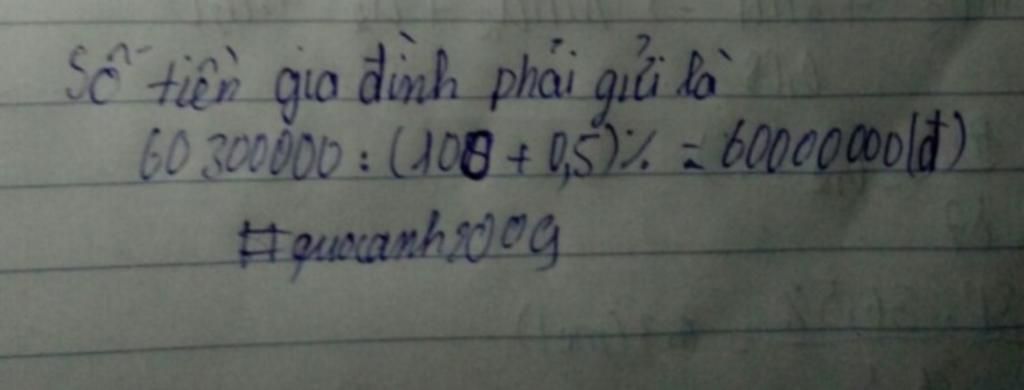 Số tiền gia đình phải gửi là
60 300000 : (100 + 0,5)% = 60000000(đ)
#quocanh2009